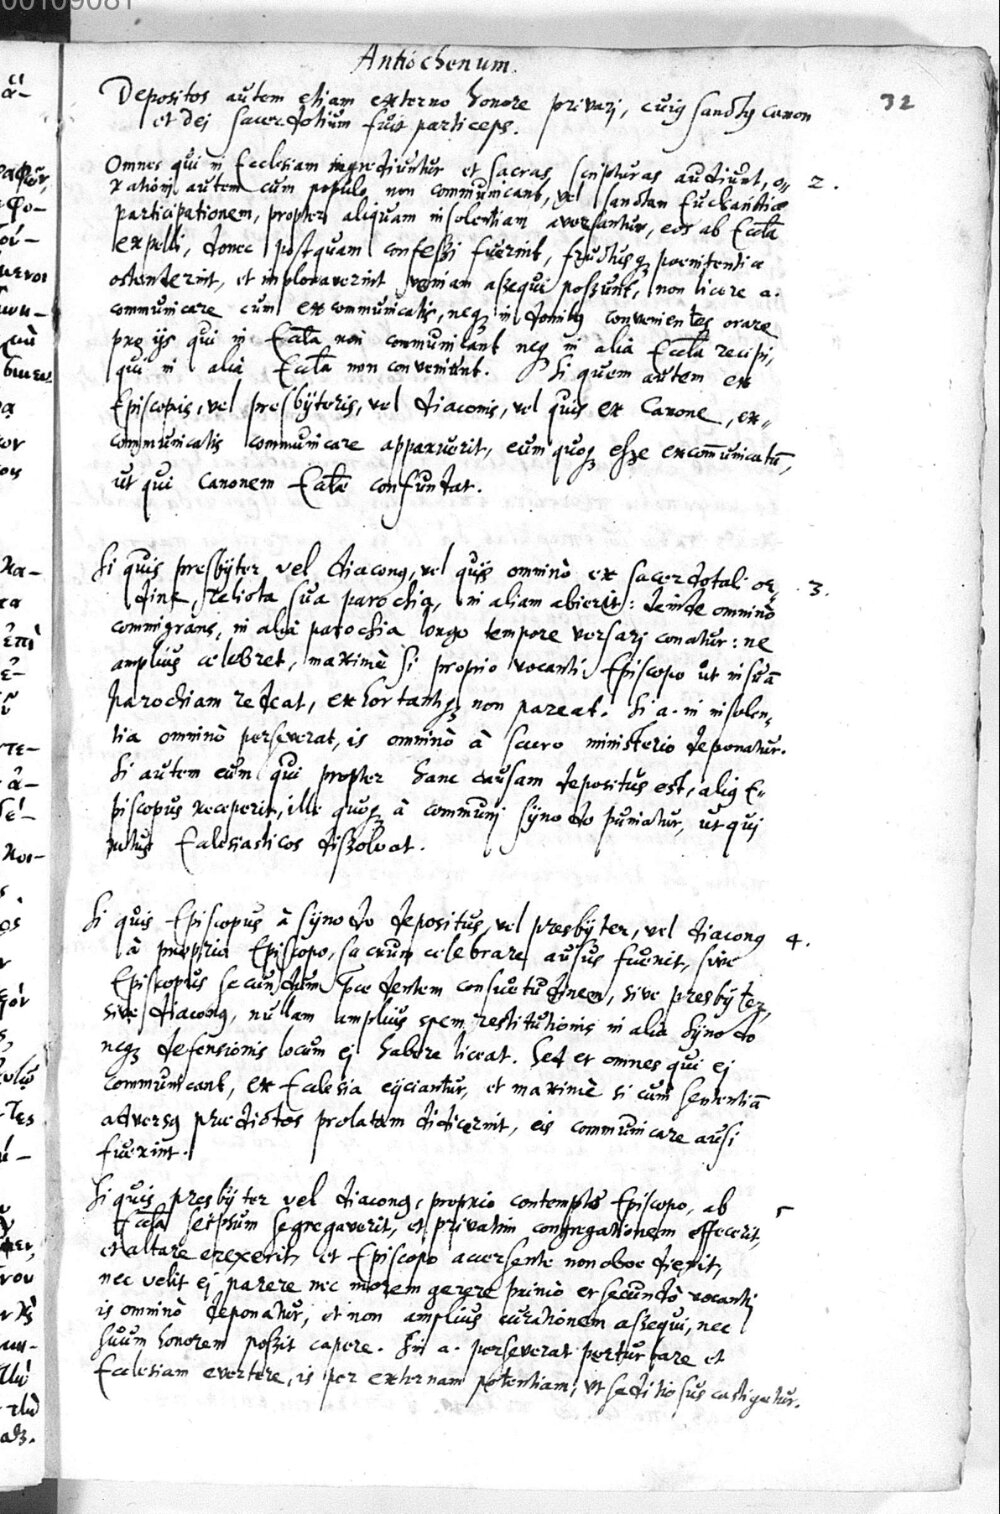 00109081
Antiochenum.
32
Depositos autem etiam externo honore privari, cuiꝰ sanctꝰ canon
et dei sacerdotium fuit particeps.
Omnes qui in Ecclesiam ingrediuntur et sacras scripturas audiunt, o„ 2.
rationi autem cum populo non communicant, vel sanctam Eucharistiæ
participationem, propter aliquam insolentiam aversantur, eos ab Eccl̃a
expelli, donec postquam confessi fuerint, fructusqꝫ poenitentiæ
ostenderint, et imploraverint veniam assequi possunt, non licere a.
communicare cum excommunicatis, neqꝫ in domibꝰ convenientes orare
pro ijs qui in Eccl̃a non communicant neqꝫ in aliã Eccl̃a recipi,
qui in aliã Eccl̃a non conveniunt. Si quem autem ex
Episcopis, vel presbÿteris, vel diaconis, vel quis ex Canone, ex„
communicatis communicare apparuerit, eum quoqꝫ esse excom̃unicatũ,
ut qui canonem Eccl̃æ confundat.
Si quis presbÿter vel diaconꝰ, vel quis omninò ex sacerdotali or„ 3.
dine, relicta sua parochia, in aliam abierit: deinde omninò
commigrans, in aliã parochia longo tempore versari conatur: ne
amplius celebret, maximè si proprio vocanti Episcopo ut in suã
parochiam redeat, exhortantiqꝫ non pareat. Si a. in insolen„
tia omninò perseverat, is omninò à sacro ministerio deponatur.
Si autem eum qui propter hanc causam depositus est, aliꝰ E„
piscopus receperit, ille quoqꝫ à communi sÿnodo puniatur, ut qui
ritus Ecclesiasticos dissolvat.
Si quis Episcopus à sÿnodo depositus, vel presbÿter, vel diaconꝰ 4.
à proprio Episcopo, sacrum celebrare ausus fuerit, sive
Episcopus secundum p̃cedentem consuetudinem, sive presbÿter,
sive diaconꝰ, nullam amplius spem restitutionis in alia sÿnodo
neqꝫ defensionis locum ei habere liceat. Sed et omnes qui ei
communicant, ex Ecclesia eijciantur, et maximè si cum sententiã
adversꝰ prædictos prolatam didicerint, eis communicare ausi
fuerint.
Si quis presbÿter vel diaconꝰ, proprio contempto Episcopo, ab 5
Eccl̃a seipsum segregaverit, et privatim congregationem effecerit,
et altare erexerit, et Episcopo accersente non obedierit,
nec velit ei parere nec morem gerere primò et secundò vocanti,
is omninò deponatur, et non amplius curationem assequi, nec
suum honorem possit capere. Sin a. perseverat perturbare et
Ecclesiam evertere, is per externam potentiam, ut seditiosus castigetur.